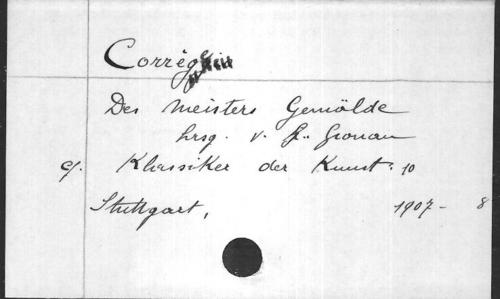 Corrègio
Des Meisters Gemälde
hrsg. v. G. Gronau
cf. Klassiker der Kunst: 10
Stuttgart, 1907- 8